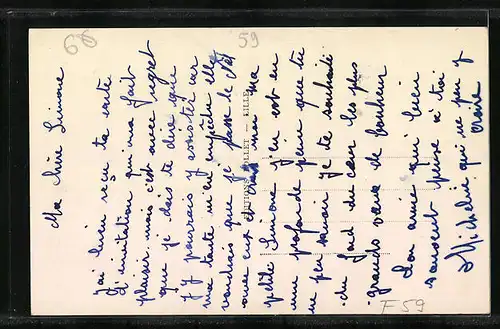 Ma chère Simone
J'ai bien reçu ta carte
d'invitation qui m'a fait
plaisir mais c'est avec regret
que je dois te dire que
j'y pourrais y assister car
ma tante m'en empêche elle
voudrais que je passe le
avec eux et mon ma
petite Simone j'en est eu
une profonde peine que tu
ne peu savoir je te souhaite
du fond du cœur les plus
grands vœux de bonheur
Ton amie qui bien
souvent pense à toi
Micheline qui ne peu y
croire
EDITIONS LILLE
59
F 59